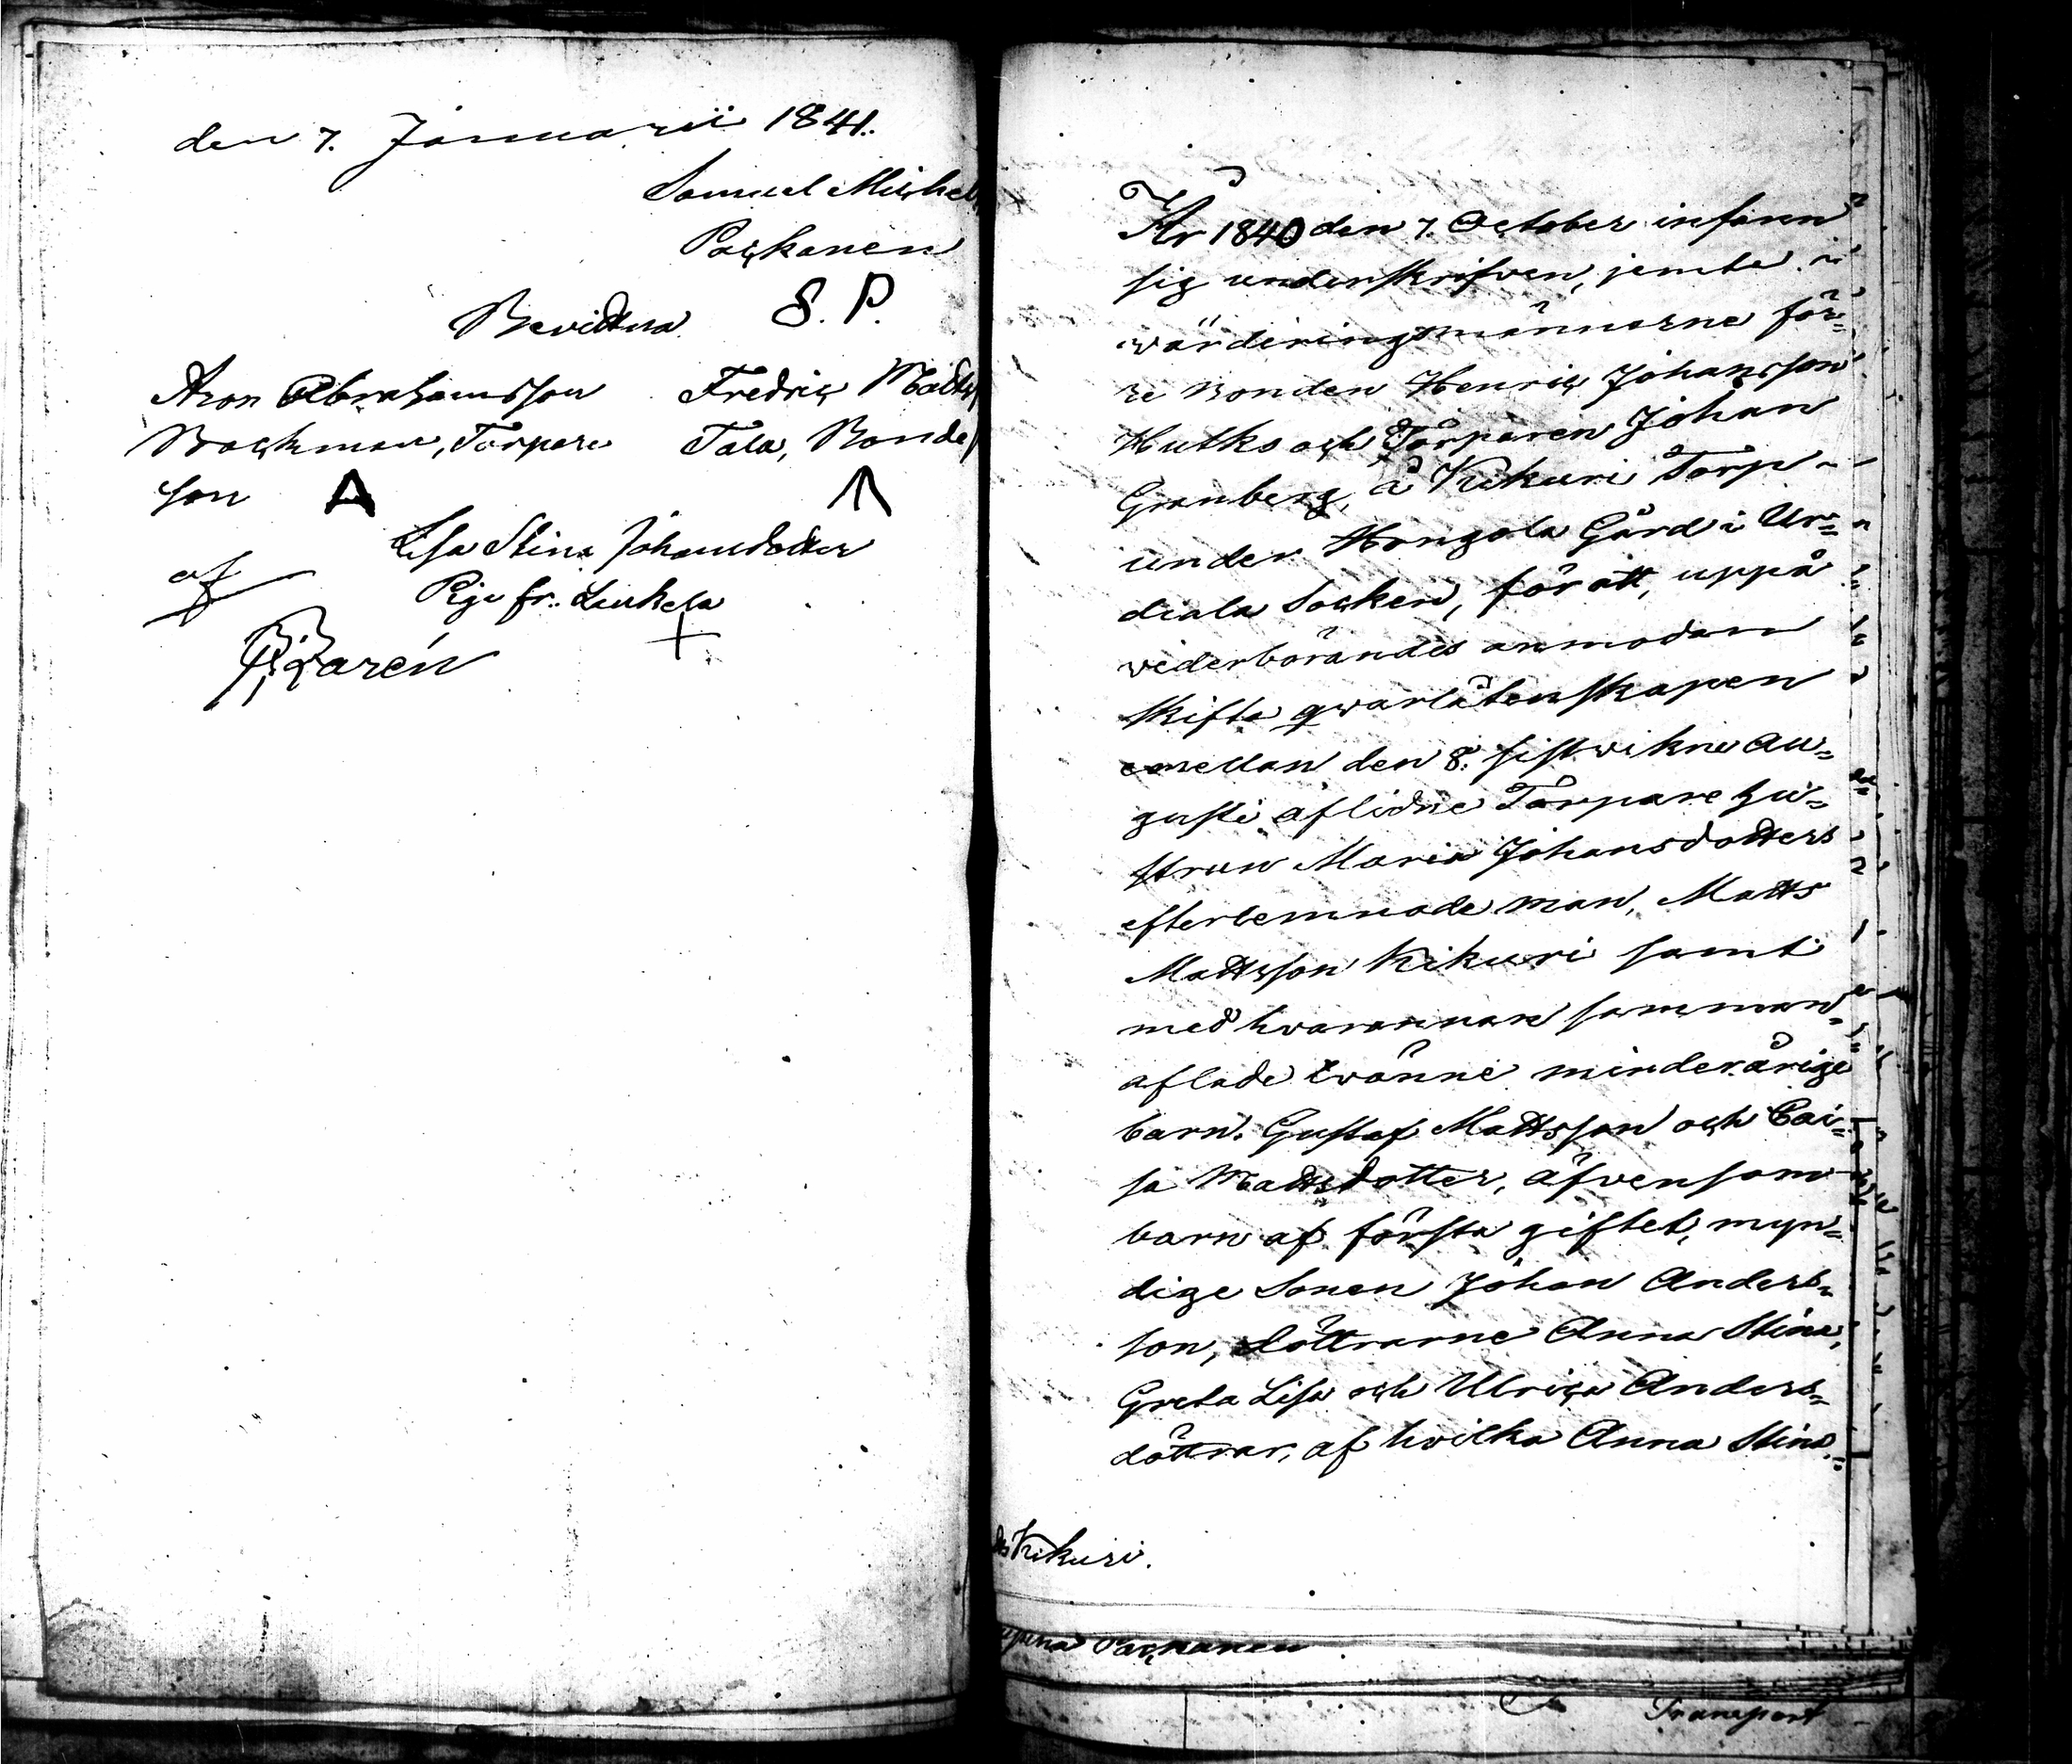 den 7. Januarii 1841.
Samuel Michel
Packanen
Bevittna S. P.
Aron Abrahamsson Fredric Matts
Bockman, Torpare Tala, Bonde
son A
Lisa Stina Johansdotter
af Piga fr. Laukela
Carén
År 1840 den 7. October infann
sig underskrifven, jemte
wärderingsmännerne för=
re Bonden Henric Johansson
Hutko och Torparen Johan
Granberg, å Kikuri Torp
under Hongola Gård i Ur=
diala Socken, för att, uppå
wederbörandes anmodan
skifta qwarlåtenskapen
emellan den 8. sistwikne Au=
gusti aflidne Torpare hu=
strun Maria Johansdotters
efterlemnade man, Matts
Mattsson Kikuri samt
med hvarannan samman=
aflade twänne minderårige
barn. Gustaf Mattsson och Cai=
sa Mattsdotter, äfvensom
barn af första giftet, myn=
dige Sonen Johan Anders=
son, döttrarne Anna Stina,
Greta Lisa och Ulrica Anders=
döttrar, af hvilka Anna Stina
Kikuri.
Packanen
Transport